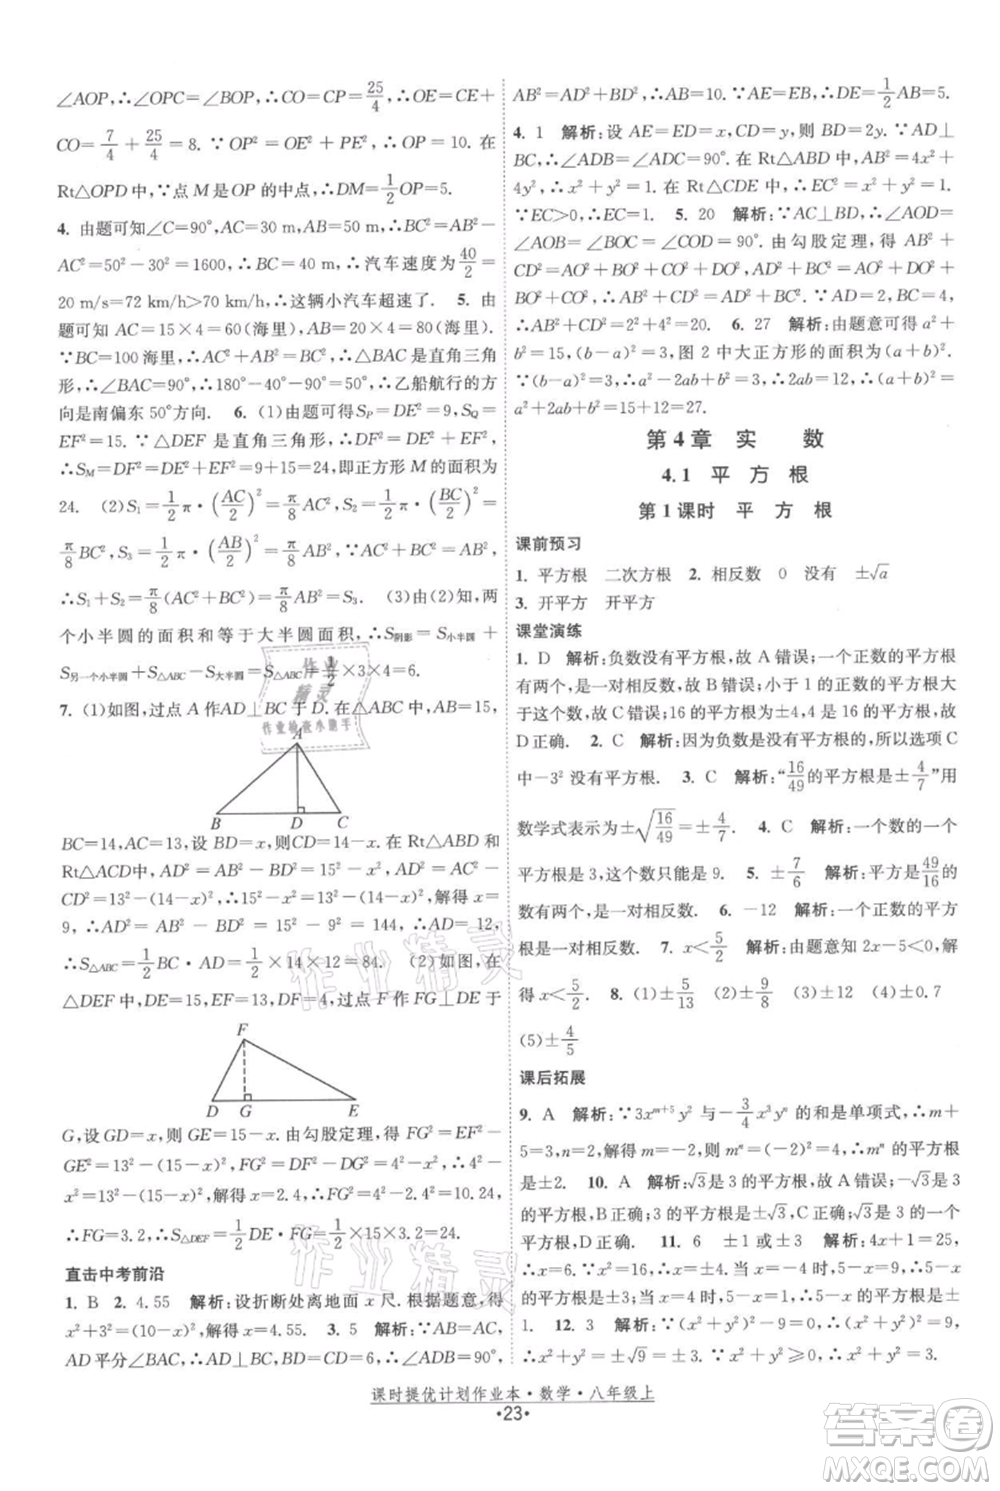 ∠AOP,∴∠OPC=∠BOP,∴CO=CP=25/4,∴OE=CE+
CO=7/4+25/4=8.∴OP²=OE²+PE²=100.∴OP=10.在
Rt△OPD中,∵点M是OP的中点,∴DM=1/2OP=5.
4. 由题可知∠C=90°,AC=30 m,AB=50 m,∴BC²=AB²-
AC²=50²-30²=1600,∴BC=40 m.∴汽车速度为40/2=
20 m/s=72 km/h>70 km/h.∴这辆小汽车超速了. 5. 由
题可知AC=15×4=60(海里),AB=20×4=80(海里).
∵BC=100海里,∴AC²+AB²=BC².∴△ABC是直角三角
形,∴∠BAC=90°.∵180°-90°-40°=50°,∴乙船航行的方
向是南偏东50°方向. 6. (1)由题可得S_P=DE²=9,S_Q=
EF²=15.∵△DEF是直角三角形,∴DF²=DE²+EF²,
∴S_M=DF²=DE²+EF²=9+15=24,即正方形M的面积为
24. (2)S₁=1/2π·(AC/2)²=π/8AC²,S₂=1/2π·(BC/2)²=
π/8BC²,S₃=1/2π·(AB/2)²=π/8AB².∵AC²+BC²=AB²,
∴S₁+S₂=π/8(AC²+BC²)=π/8AB²=S₃. (3)由(2)知,两
个小半圆的面积和等于大半圆面积,∴S阴影=S一个小半圆+
S另一个小半圆+S△ABC-S大半圆=S△ABC=1/2×3×4=6.
7. (1)如图,过点A作AD⊥BC于D.在△ABC中,AB=15,
A
B D C
BC=14,AC=13,设BD=x,则CD=14-x.在Rt△ABD和
Rt△ACD中,AD²=AB²-BD²=15²-x²,AD²=AC²-
CD²=13²-(14-x)²,∴15²-x²=13²-(14-x)².解得x=
9,∴AD²=AB²-BD²=15²-9²=144.∵AD>0,∴AD=12,
∴S△ABC=1/2BC·AD=1/2×14×12=84. (2)如图,在
△DEF中,DE=15,EF=13,DF=4,过点F作FG⊥DE于
F
D G E
G,设GD=x,则GE=15-x.由勾股定理,得FG²=EF²-
GE²=13²-(15-x)²,FG²=DF²-GD²=4²-x²,∴4²
-x²=13²-(15-x)².解得x=2.4,∴FG²=4²-2.4²=10.24,
∴FG=3.2,∴S△DEF=1/2DE·FG=1/2×15×3.2=24.
直击中考前沿
1. B 2. 4.55 解析:设折断处离地面x尺.根据题意,得
x²+3²=(10-x)².解得x=4.55. 3. 5 解析:∵AB=AC,
AD平分∠BAC,∴AD⊥BC,BD=CD=6,∴∠ADB=90°,
AB²=AD²+BD²,∴AB=10.∵AE=EB,∴DE=1/2AB=5.
4. 1 解析:设AE=ED=x,CD=y,∴BD=2y.∵AD⊥
BC,∴∠ADB=∠ADC=90°.在Rt△ABD中,AB²=4x²+
4y²,∴x²+y²=1.在Rt△CDE中,∴EC²=x²+y²=1.
∵EC>0,∴EC=1. 5. 20 解析:∵AC⊥BD,∴∠COD=
∠AOB=∠BOC=∠AOD=90°.由勾股定理,得AB²+
CD²=AO²+BO²+CO²+DO²,AD²+BC²=AO²+DO²+
BO²+CO²,∴AB²+CD²=AD²+BC².∵AD=2,BC=4,
∴AB²+CD²=2²+4²=20. 6. 27 解析:由题意可得a²+
b²=15,(b-a)²=3,图2中大正方形的面积为(a+b)².
∵(b-a)²=3,∴a²-2ab+b²=3,∴15-2ab=3,∴2ab=12.
∴(a+b)²=a²+2ab+b²=15+12=27.
第4章 实 数
4.1 平 方 根
第1课时 平 方 根
课前预习
1. 平方根 二次方根 2. 相反数 0 没有 ±√a
3. 开平方 开平方
课堂演练
1. D 解析:负数没有平方根,故A错误;一个正数的平方根
有两个,是一对相反数,故B错误;小于1的正数的平方根
大于这个数,故C错误;16的平方根为±4,4是其中一个,故
D正确. 2. C 解析:因为负数是没有平方根的,所以选项C
中-3²没有平方根. 3. C 解析:“16/49的平方根是±4/7”用
数学式表示为±√(16/49)=±4/7. 4. C 解析:一个数的一个
平方根是3,这个数只能是9. 5. ±7/6 解析:平方是49/16的
数有两个,是一对相反数. 6. -12 解析:一个正数的平方
根是一对相反数. 7. x<5/2 解析:由题意知2x-5<0,解
得x<5/2. 8. (1)±5/13 (2)±9/8 (3)±12 (4)±0.7
(5)±4/5
课后拓展
9. A 解析:∵3x^(m+5)y²与-3/4x³yⁿ的和是单项式,∴m+
5=3,n=2,解得m=-2.∴mⁿ=(-2)²=4,∴mⁿ的平方根
是±2. 10. A 解析:√3是3的一个平方根;-√3也是3
的平方根,即±√3都是3的平方根;3的平方根有两个,它们
互为相反数. 11. 6 6 ±1 解析:4x+1=(±5)²=25,
∴x=6,∴5-x=5-6=-1,∴|5-x|=1,∴|5-x|的平方根是±
1. 12. 3 解析:∵(x²+y²)²-9=0,∴(x²+y²)²=9,
∴x²+y²=±√9=±3.∵x²+y²≥0,∴x²+y²=3.
课时提优计划作业本·数学·八年级上
·23·
作业精灵
作业检查小助手
作业精灵
作业精灵
答案圈
MXQE.COM